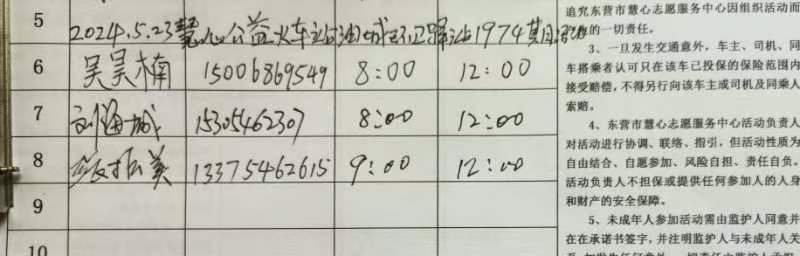 5
2024.5.23慧心公益火车站油城环卫驿站1974其
6 吴昊楠 15006869549 8:00 12:00
7 刘海城 15305462307 8:00 12:00
8 振美 13375462615 9:00 12:00
9
10
追究东营市慧心志愿服务中心因组织活动而
的一切责任。
3、一旦发生交通意外，车主、司机、同
车搭乘者认可只在该车已投保的保险范围内
接受赔偿，不得另行向该车主或司机及同乘人
索赔。
4、东营市慧心志愿服务中心活动负责人
对活动进行协调、联络、指引，但活动性质为
自由结合、自愿参加、风险自担、责任自负。
活动负责人不担保或提供任何参加人的人身
和财产的安全保障。
5、未成年人参加活动需由监护人同意并
在在承诺书签字，并注明监护人与未成年人关